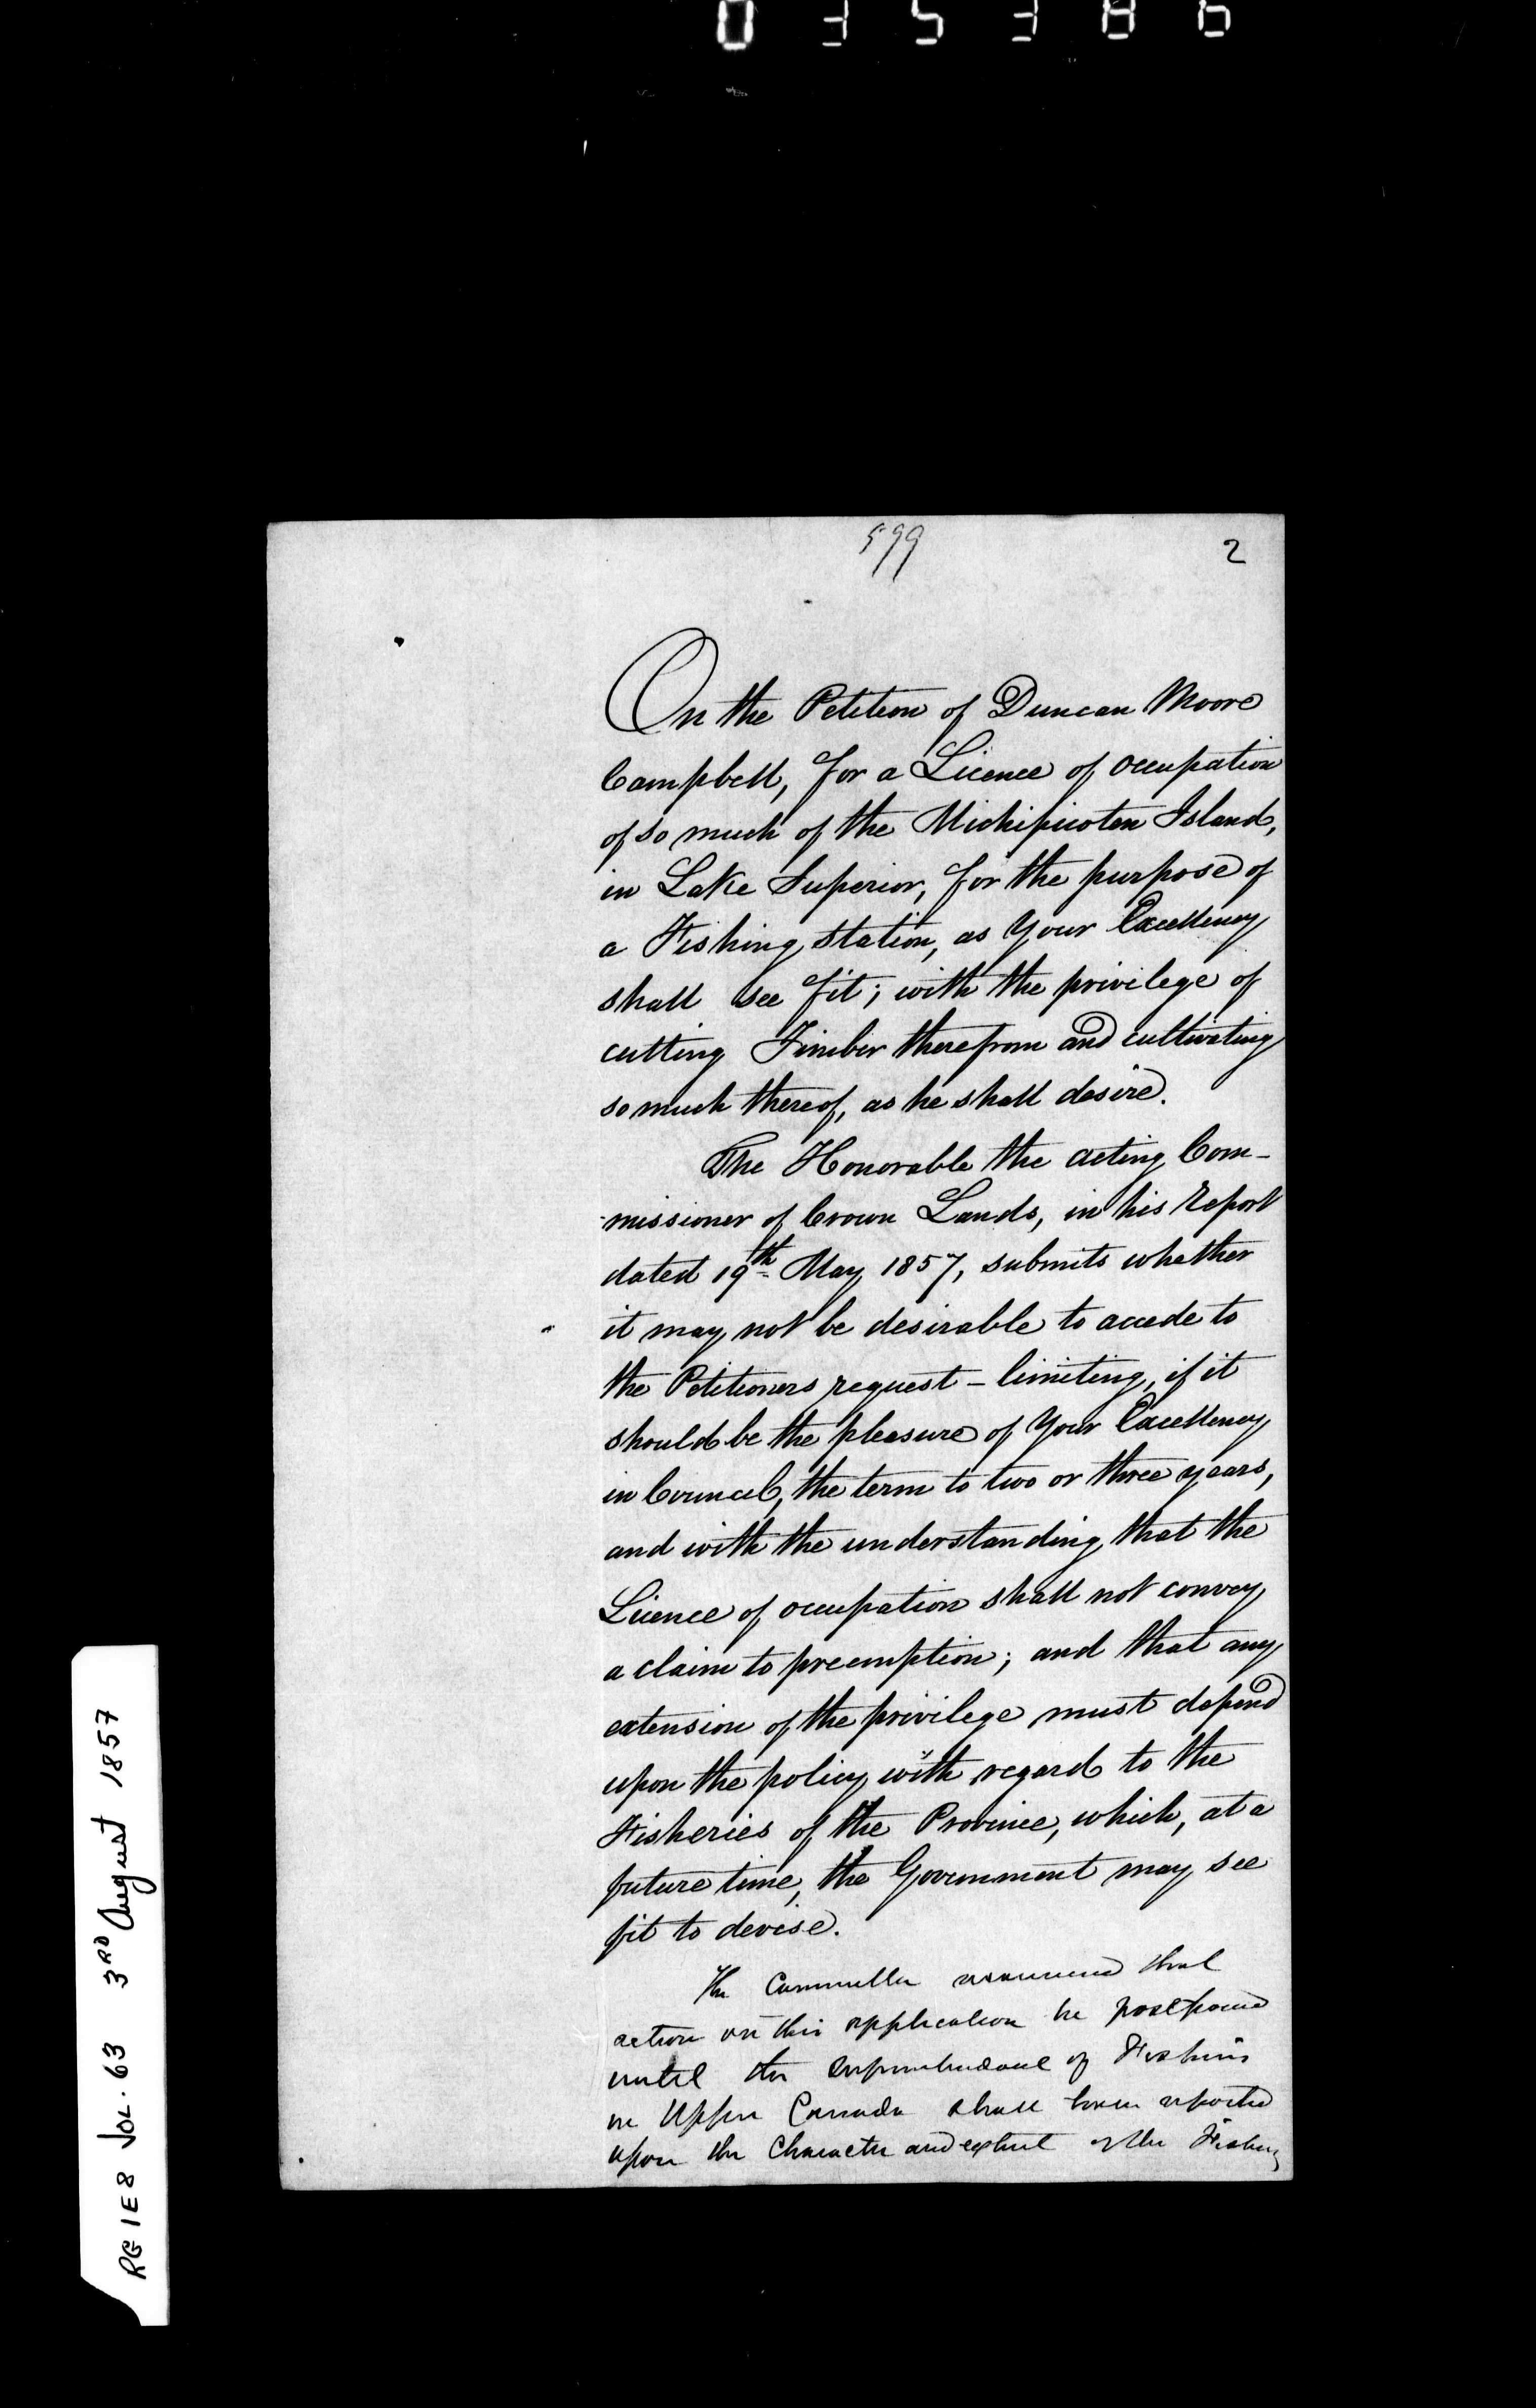 035386
599
2
On the Petition of Duncan Moore
Campbell, for a Licence of occupation
of so much of the Michipicoten Island,
in Lake Superior, for the purpose of
a Fishing station, as Your Excellency
shall see fit; with the privilege of
cutting Timber therefrom and cultivating
so much thereof, as he shall desire.
The Honorable the acting Com-
-missioner of Crown Lands, in his report
dated 19th May 1857, submits whether
it may not be desirable to accede to
the Petitioners request - limiting, if it
should be the pleasure of Your Excellency
in Council, the term to two or three years,
and with the understanding that the
Licence of occupation shall not convey
a claim to preemption; and that any
extension of the privilege must depend
upon the policy with regard to the
Fisheries of the Province, which, at a
future time, the Government may see
fit to devise.
The Committee recommend that
action on this application be postponed
until the Superintendent of Fisheries
in Upper Canada shall have reported
upon the Character and extent of the Fishery
RG 1 E 8 Vol. 63 3RD August 1857